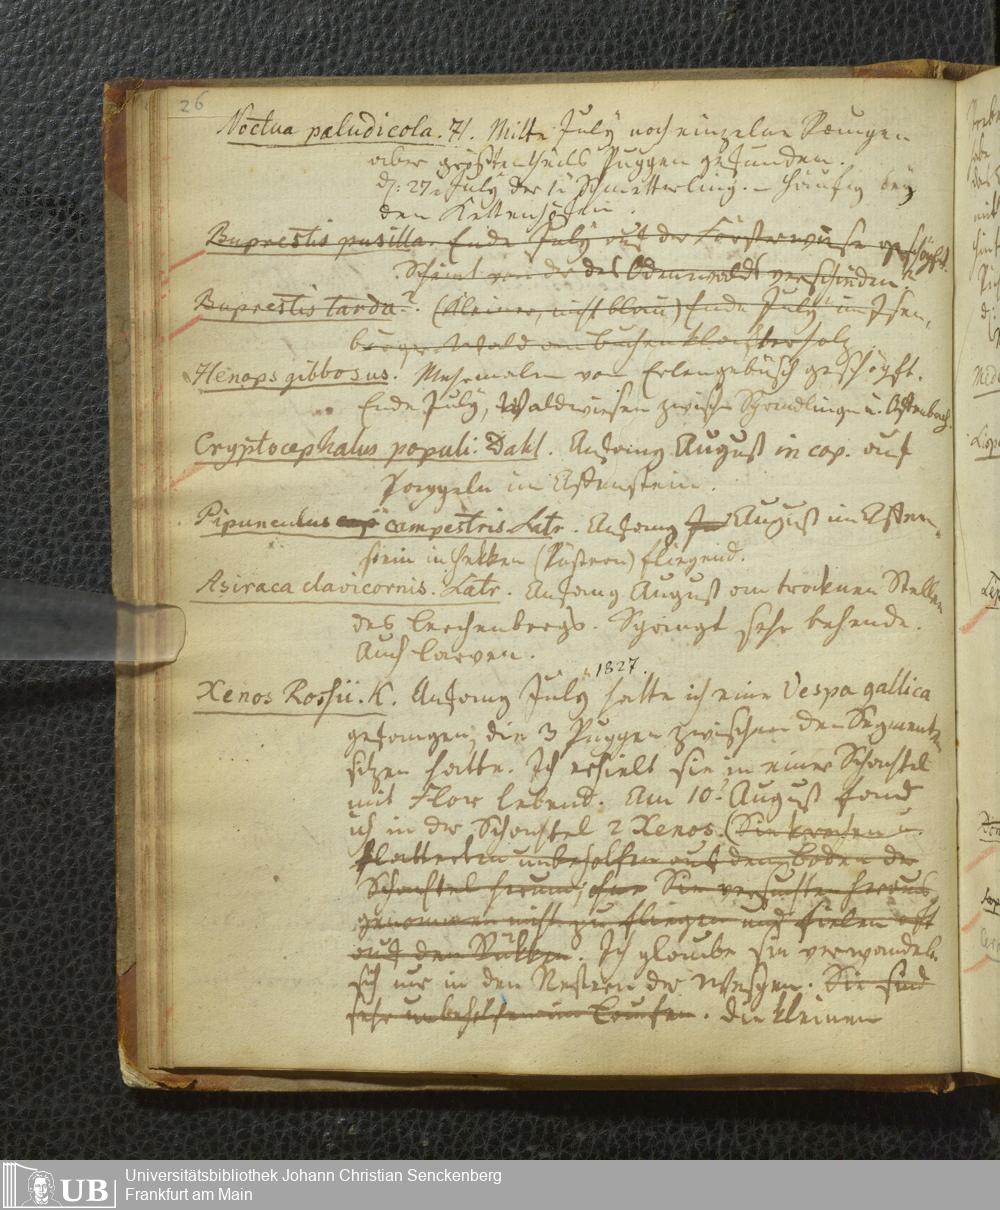 26
Noctua paludicola. H. Mitte July noch einzelne Raupen
aber größtentheils Puppen gefunden.
d: 27n July der 1e Schmetterling. – häufig bey
den Kettenhöfen.
Buprestis pusilla. Ende July auf der Försterwiese geschöpft.
Scheint von der des Odenwalds verschieden.
Buprestis tarda? (kleiner, nicht blau) Ende July im Isen-
burger Wald am buchen klafterholz
Henops gibbosus. Mehrmalen von Erlengebüsch geschöpft.
Ende July, Waldwiesen zwischen Sprendlingen u. Offenbach.
Cryptocephalus populi. Dahl. Anfang August in cop. auf
Pappeln in Affenstein.
Pipunculus camp campestris Latr. Anfang Jul August im Affen-
stein in Hekken fliegend.
Asiraca clavicornis. Latr. Anfang August an trocknen Stellen
des Lerchenbergs. Springt sehr behende.
Auch Larven.
Xenos Rossii. K. Anfang July 1827. hatte ich eine Vespa gallica
gefangen, die 3 Puppen zwischen den Segmenten
sitzen hatte. Ich erhielt sie in einer Schachtel
mit Flor lebend. Am 10. August fand
ich in der Schachtel 2 Xenos. (Sie krochen u.
flatterten unbeholfen auf dem Boden der
Schachtel herum, Sie versuchten heraus
genommen nicht zu fliegen und fielen oft
auf den Rükken. Ich glaube sie verwandeln
sich nur in den Nestern der Wespen. Sie sind
sehr unbeholfen im Laufen. Die kleinen
UB
Universitätsbibliothek Johann Christian Senckenberg
Frankfurt am Main